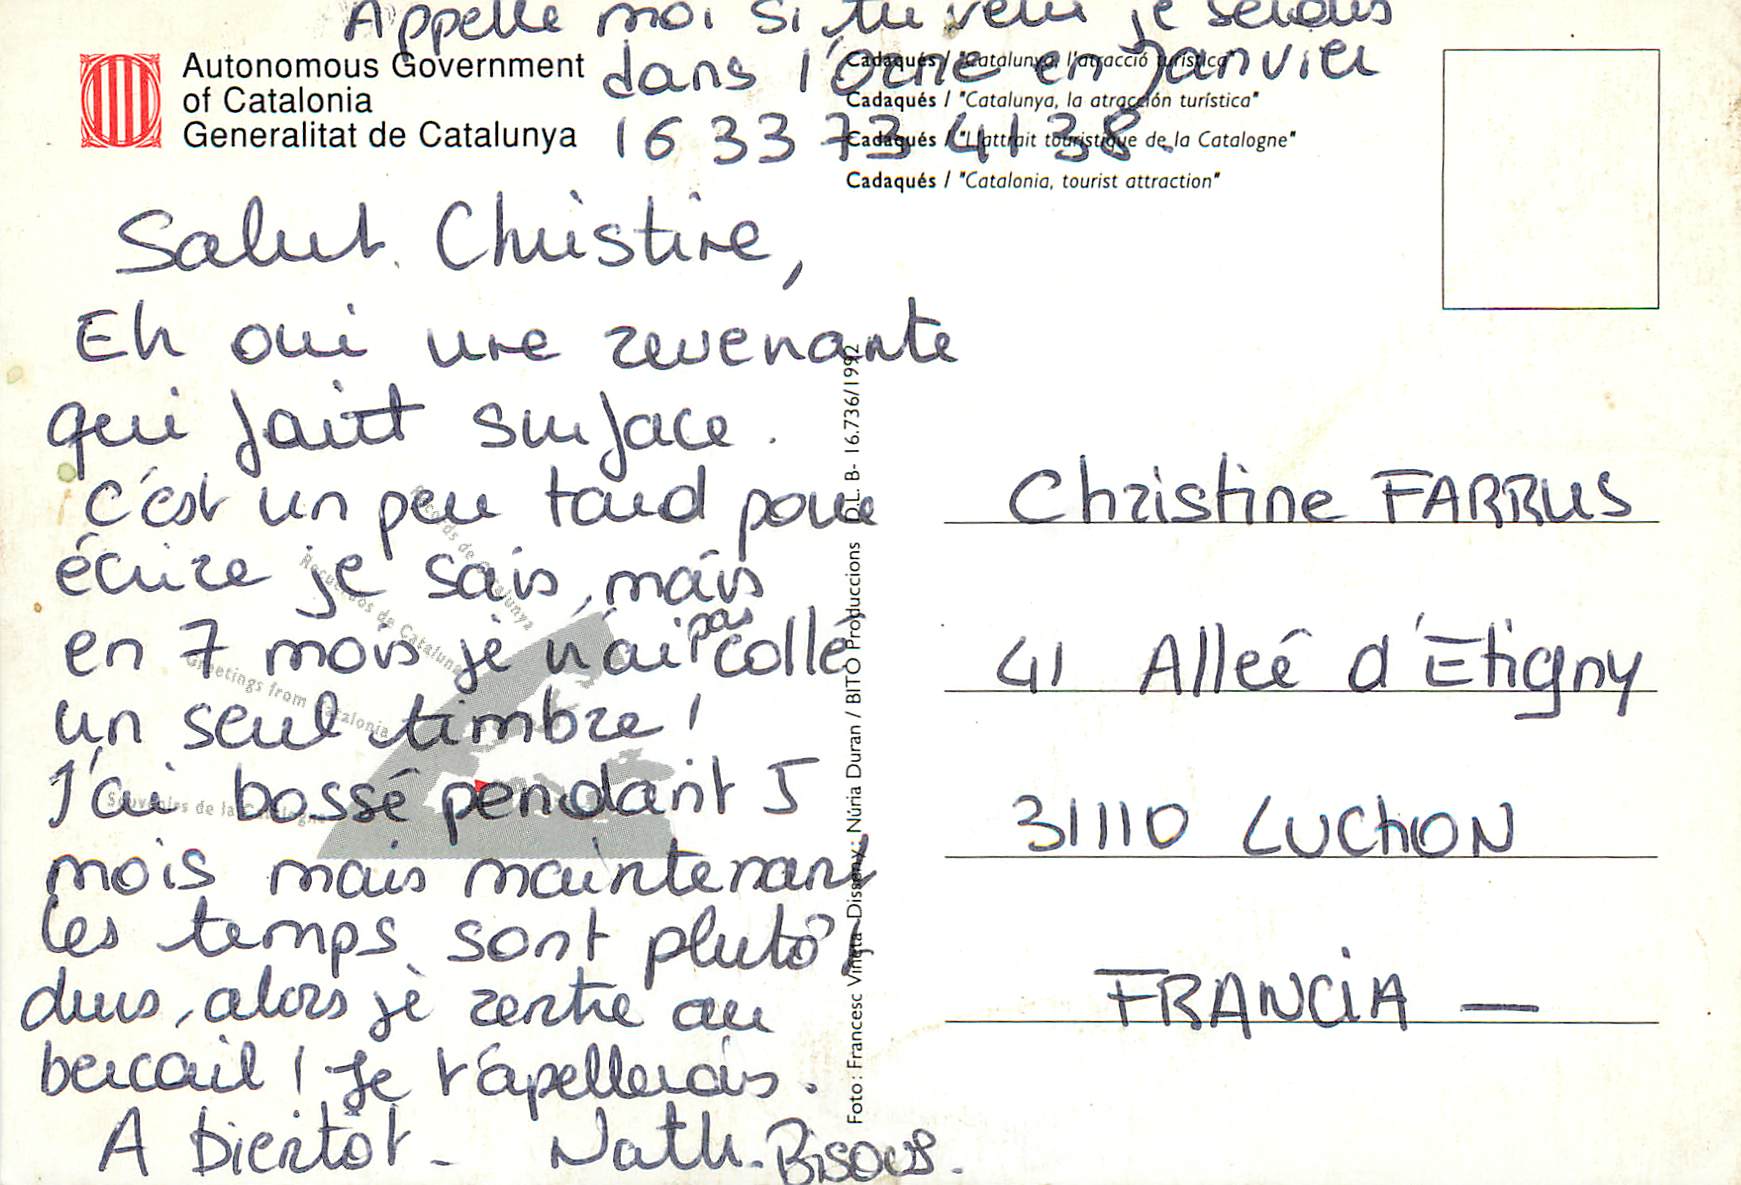 Appelle moi si tu veux je serais
dans l'Orne en Janvier
16 33 73 41 38.
Autonomous Government
of Catalonia
Generalitat de Catalunya
Cadaqués / "Catalunya, l'atracció turística"
Cadaqués / "Catalunya, la atracción turística"
Cadaqués / "L'attrait touristique de la Catalogne"
Cadaqués / "Catalonia, tourist attraction"
Salut Christine,
Eh oui une revenante
qui faitt surface.
c'est un peu tard pour
écrire je sais, mais
en 7 mois je n'ai pas collé
un seul timbre !
J'ai bossé pendant 5
mois mais maintenant
les temps sont plutôt
durs, alors je rentre au
bercail ! Je t'apellerais.
A bientôt - Nath. Bisous.
Records de Catalunya
Recuerdos de Cataluña
Greetings from Catalonia
Souvenirs de la Catalogne
Foto: Francesc Viñeta - Disseny: Núria Duran / BITO Produccions D.L. B- 16.736/1992
Christine FARRUS
41 Alleé d'Etigny
31110 LUCHON
FRANCIA —